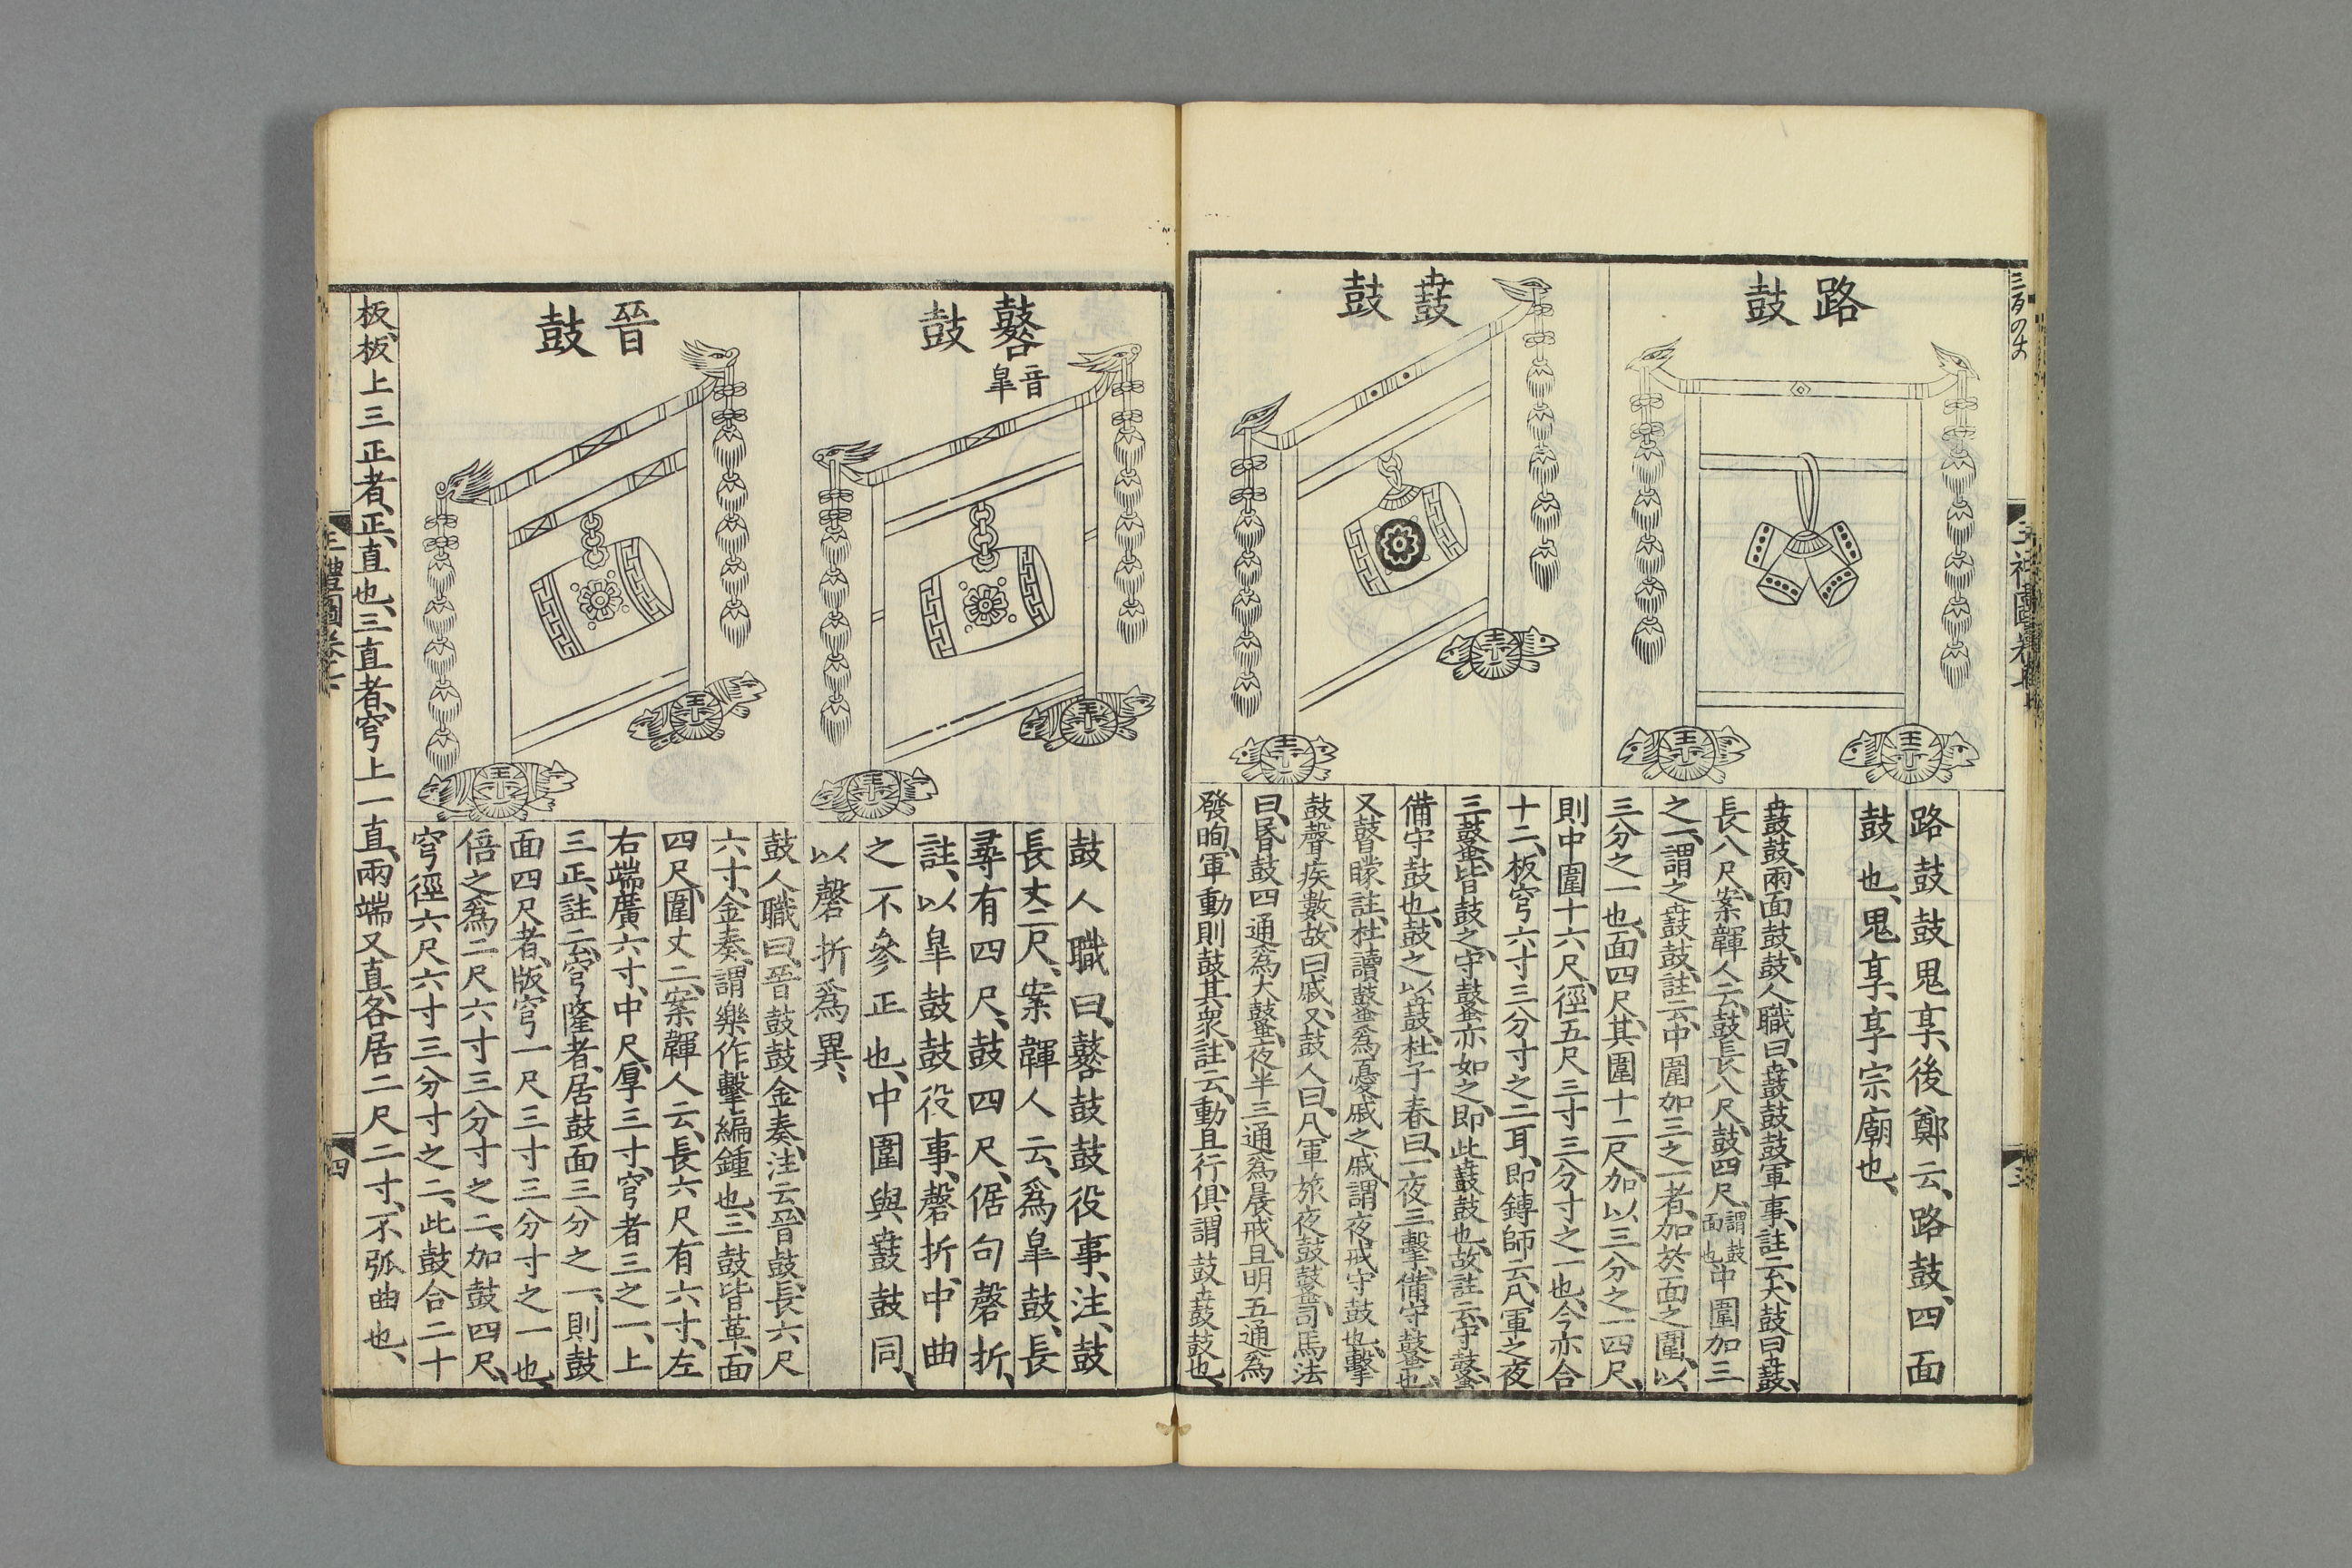 路鼓
路鼓鬼享、後鄭云、路鼓、四面
鼓也、鬼享、享宗廟也、
鼖鼓
鼖鼓、兩面鼓、鼓人職曰、鼖鼓鼓軍事、註云、大鼓曰鼖、
長八尺、案韗人云、鼓長八尺、鼓四尺、謂鼓面也中圍加三
之一、謂之鼖鼓、註云、中圍加三之一者、加於面之圍、以
三分之一也、面四尺、其圍十二尺、加以三分之一四尺、
則中圍十六尺、徑五尺三寸三分寸之一也、今亦合
十二板、穹六寸三分寸之二耳、即鎛師云、凡軍之夜
三鼜、皆鼓之、守鼜亦如之、即此鼖鼓也、故註云、守鼜、
備守鼓也、鼓之以鼖鼓、杜子春曰、一夜三擊、備守鼜也、
又瞽矇註、杜讀鼜爲憂戚之戚、謂夜戒守鼓也、擊
鼓聲疾數、故曰戚、又鼓人曰、凡軍旅夜鼓鼜、司馬法
曰、昬鼓四通爲大鼜、夜半三通爲晨戒、旦明五通爲
發昫、軍動則鼓其衆、註云、動且行、俱謂鼓鼖鼓也、
三礼圖卷七
三
鼛鼓
音皐
鼓人職曰、鼛鼓鼓役事、注、鼓
長丈二尺、案韗人云、爲皐鼓、長
尋有四尺、鼓四尺、倨句磬折、
註、以皐鼓鼓役事、磬折、中曲
之不參正也、中圍與鼖鼓同、
以磬折爲異、
晉鼓
鼓人職曰、晉鼓鼓金奏、注云、晉鼓、長六尺
六寸、金奏、謂樂作擊編鍾也、三鼓皆革、面
四尺、圍丈二、案韗人云、長六尺有六寸、左
右端廣六寸、中尺、厚三寸、穹者三之一、上
三正、註云、穹隆者、居鼓面三分之一、則鼓
面四尺者、版穹一尺三寸三分寸之一也、
倍之爲二尺六寸三分寸之二、加鼓四尺、
穹徑六尺六寸三分寸之二、此鼓合二十
板、板上三正者、正、直也、三直者、穹上一直、兩端又直、各居二尺二寸、不弧曲也、
三禮圖卷七
四